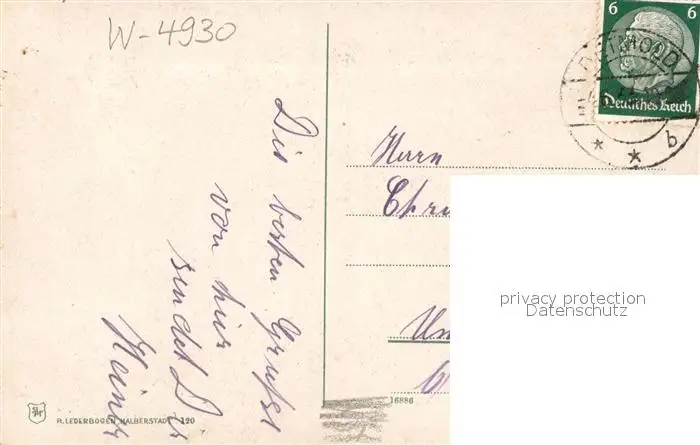 W-4930
6 6
DETMOLD
Deutsches Reich
* * b
Die besten Grüße
von hier
sendet Dir
Heinz
Herrn
privacy protection
Datenschutz
R. LEDERBOGEN, HALBERSTADT 120
16886